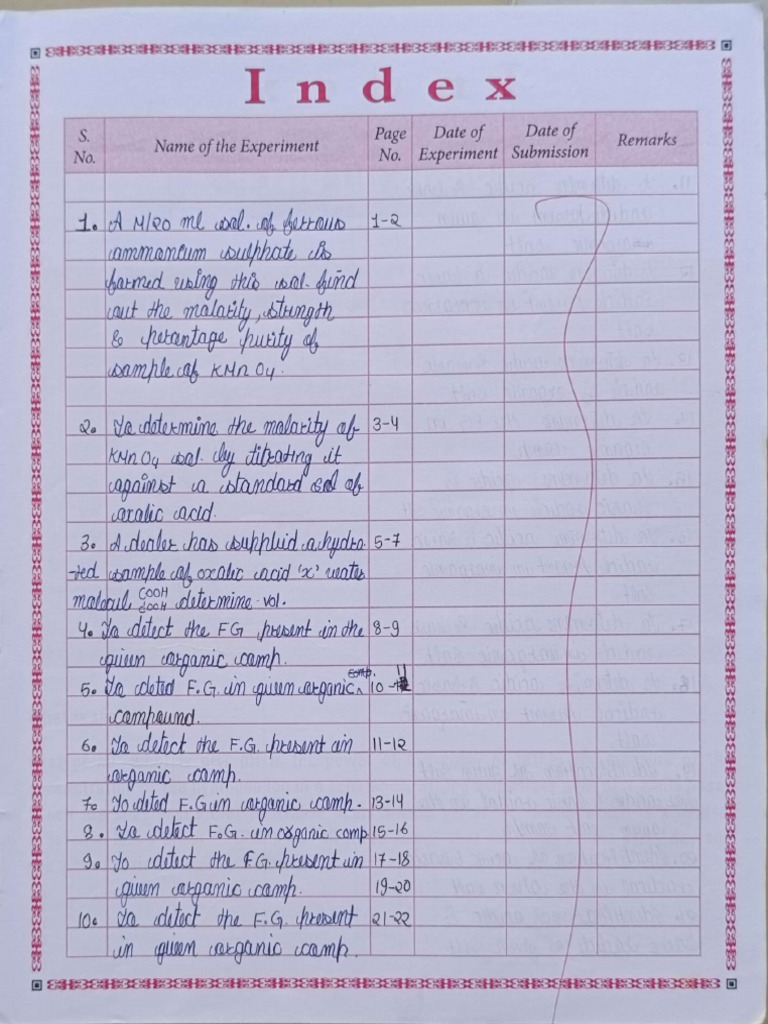 Index
S. No. Name of the Experiment Page No. Date of Experiment Date of Submission Remarks
1. A M/20 ml sol. of ferrous 1-2
ammomeum sulphate is
formed using this sol. find
out the molarity, strength
& percentage purity of
sample of KMnO4.
2. To determine the molarity of 3-4
KMnO4 sol. by titrating it
against a standard sol of
oxalic acid.
3. A dealer has supplied a hydra 5-7
-ted sample of oxalic acid 'x' water
molecul COOH COOH determine vol.
4. To detect the FG present in the 8-9
given organic comp.
5. To deted F.G. in given organic 10-11
compound.
6. To detect the F.G. present in 11-12
organic comp.
7. To deted F.G in organic comp. 13-14
8. To detect F.G. in organic comp 15-16
9. To detect the F.G. present in 17-18
given organic comp. 19-20
10. To detect the F.G. present 21-22
in given organic comp.